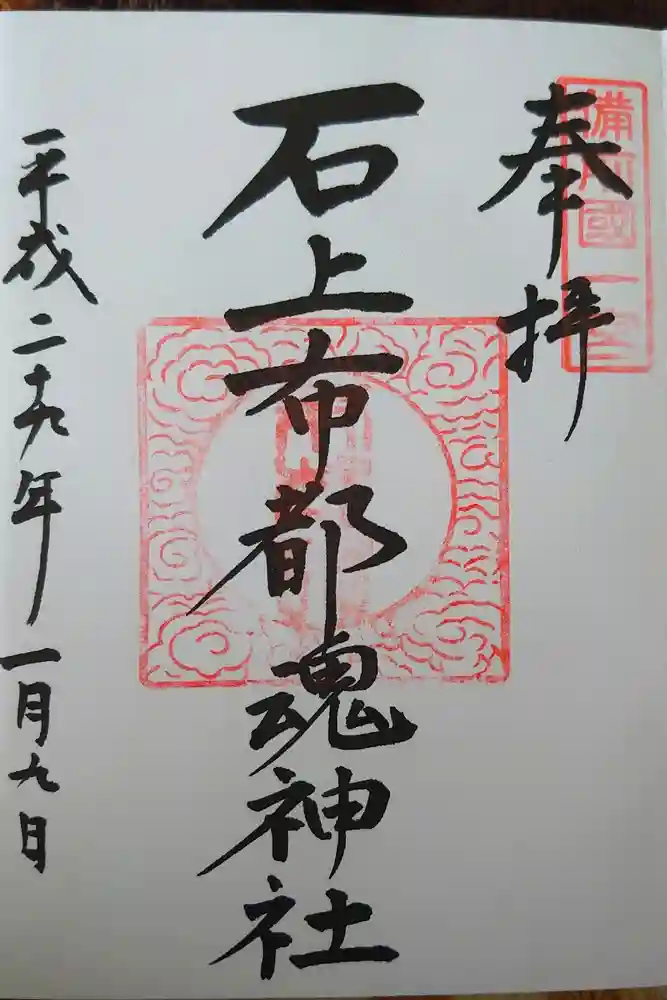 奉拝
備前國一宮
石上布都魂神社
平成二十九年一月九日